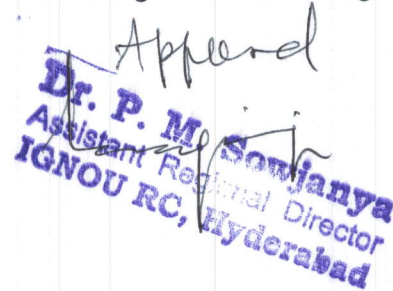 Approved
Dr. P. M. Sowjanya
Assistant Regional Director
IGNOU RC, Hyderabad